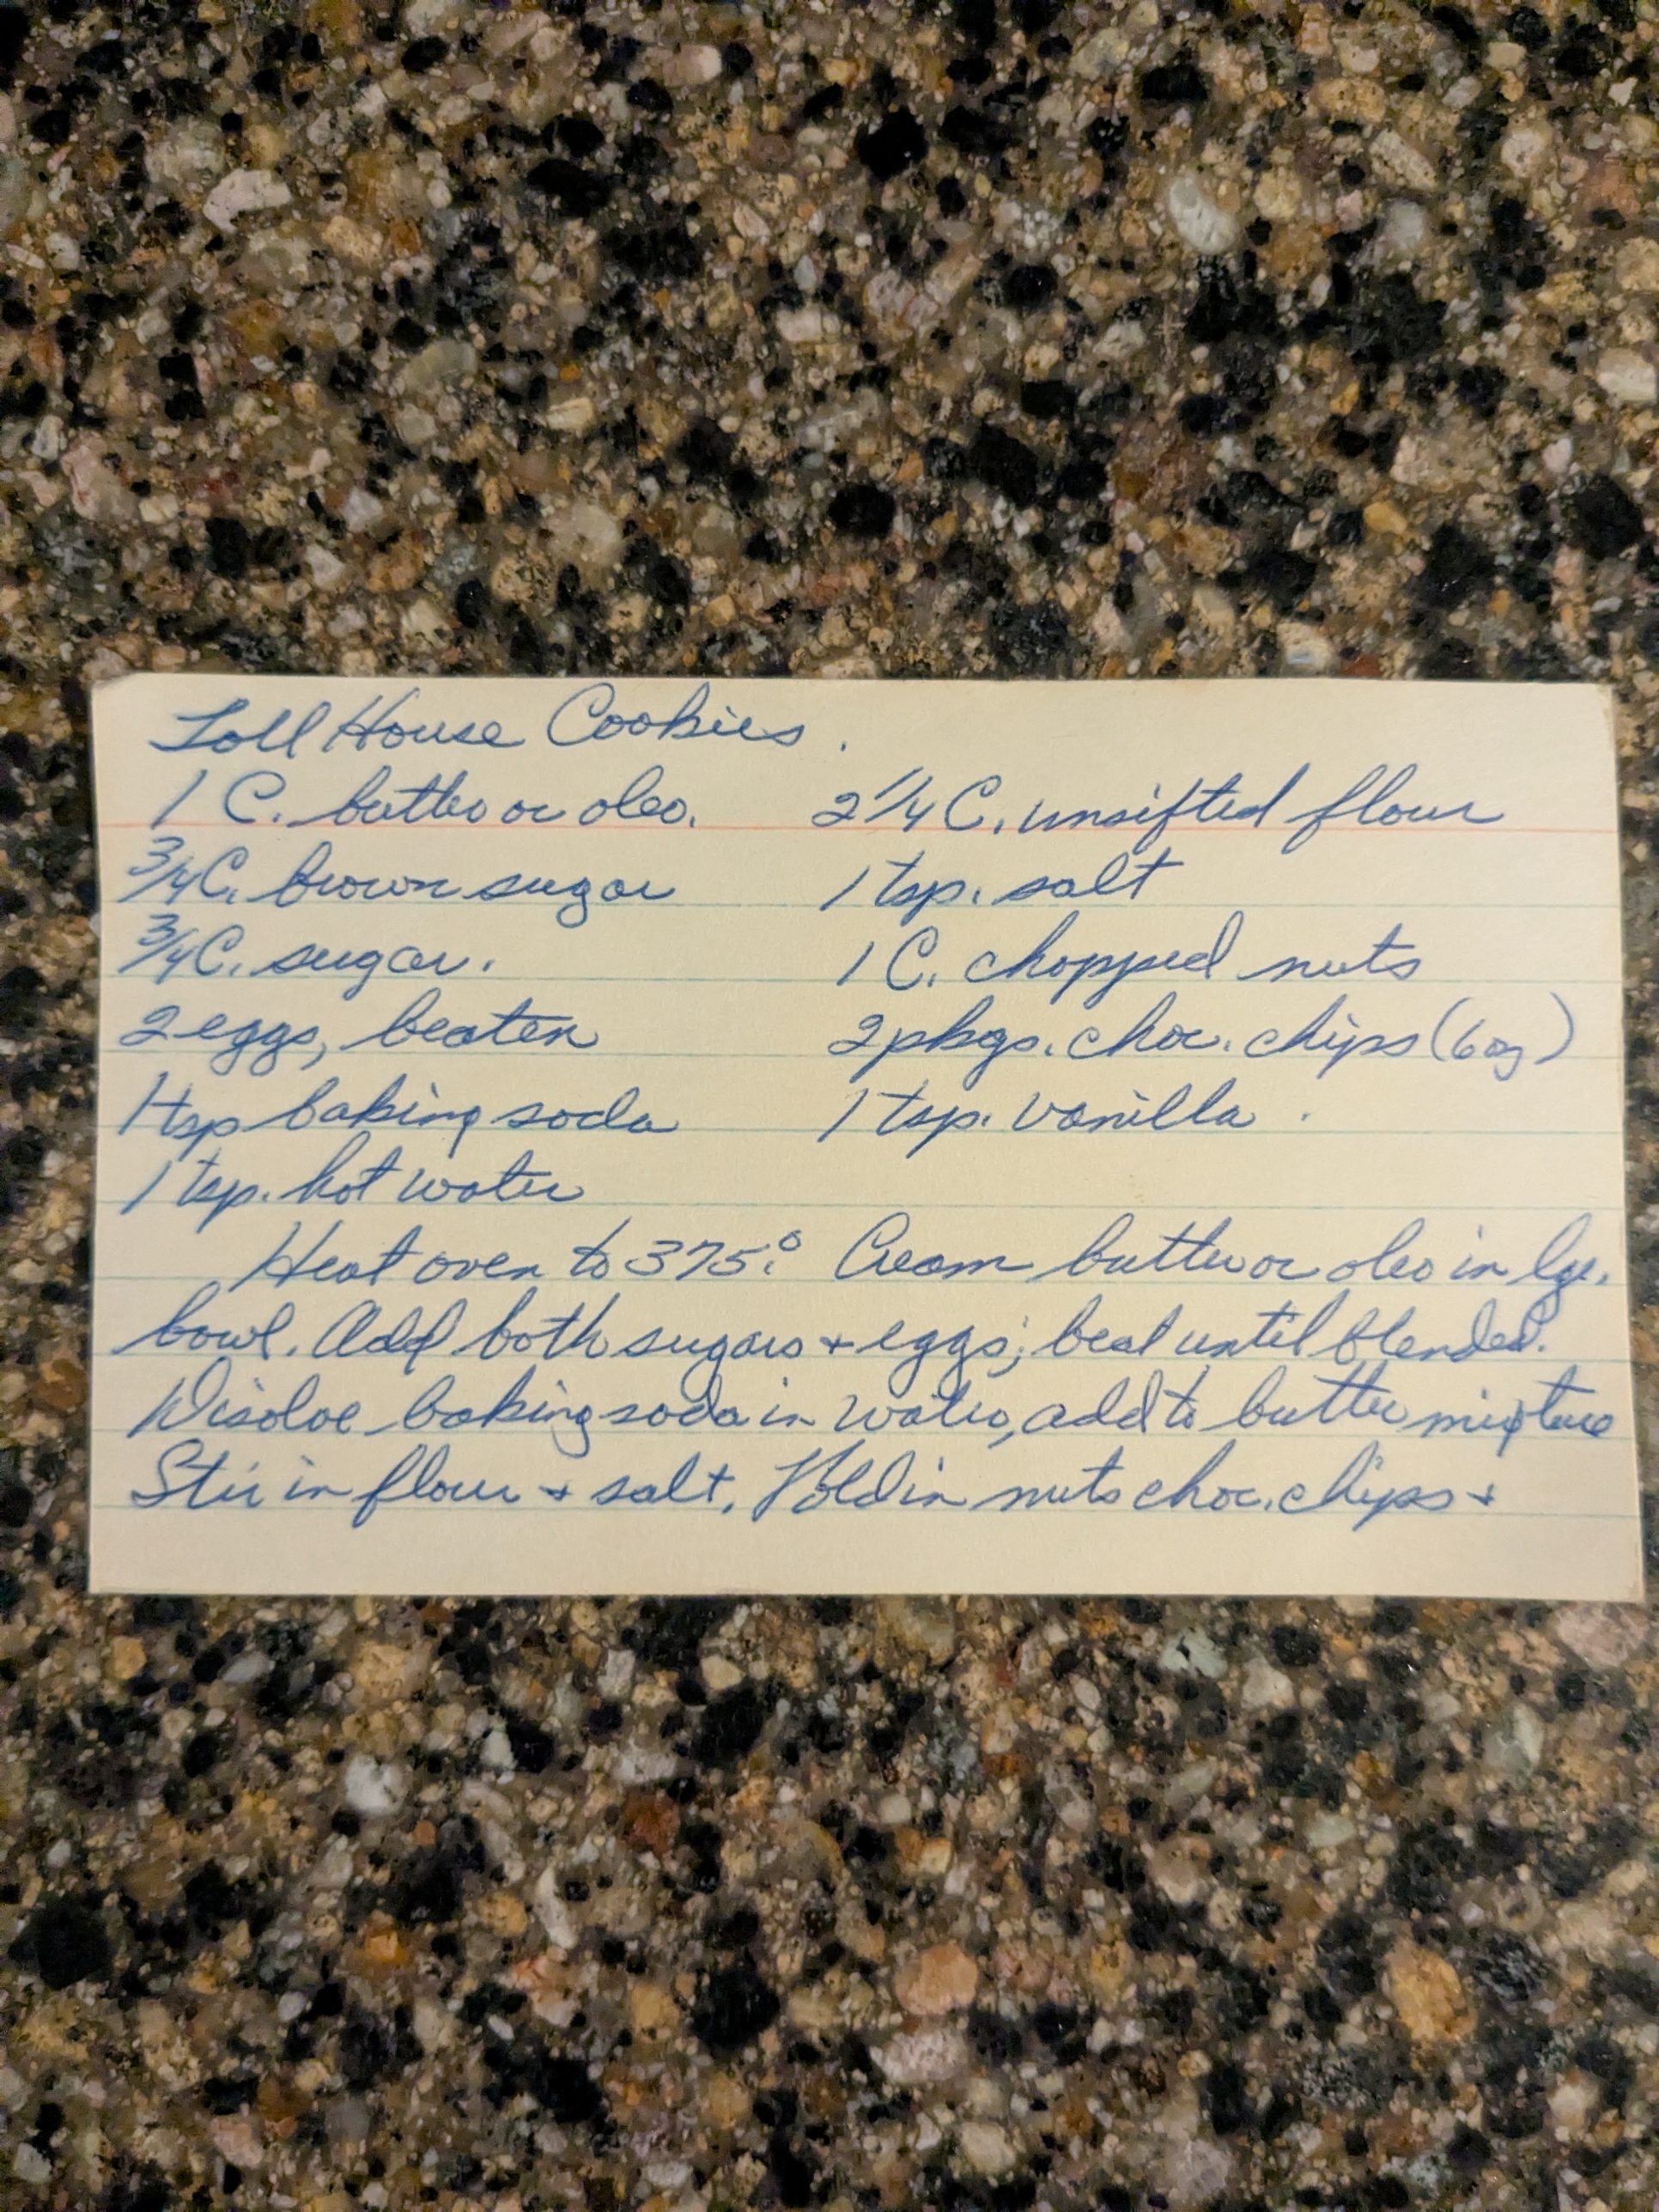 Toll House Cookies.
1 C. butter or oleo. 2 1/4 C. unsifted flour
3/4 C. brown sugar 1 tsp. salt
3/4 C. sugar. 1 C. chopped nuts
2 eggs, beaten 2 pkgs. choc. chips (6 oz)
1 tsp baking soda 1 tsp. vanilla.
1 tsp. hot water
Heat oven to 375°. Cream butter or oleo in lge.
bowl. Add both sugars + eggs; beat until blended.
Disolve baking soda in water, add to butter mixture
Stir in flour + salt. Fold in nuts choc. chips +